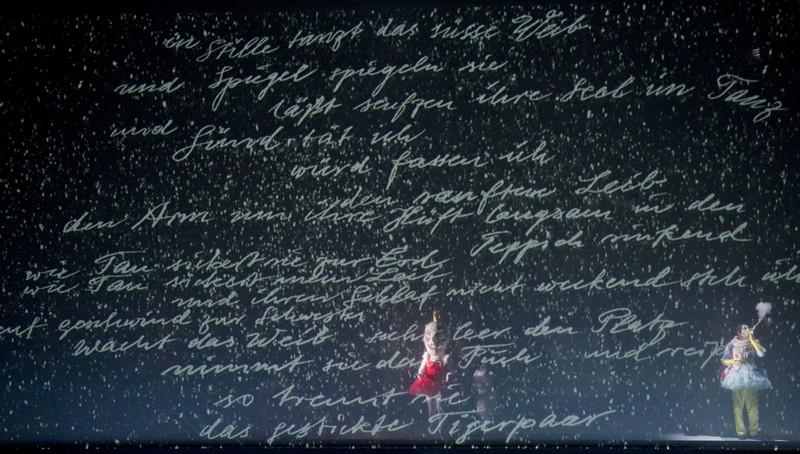 in Stille tanzt das süsse Weib
und Spiegel spiegeln sie
und läßt seufzen ihre Seel im Tanz
Sünd tät ich
würd fassen ich
den sanften Leib
den Arm um ihre Hüft langsam in den
Teppich sinkend
wie Tau sickert sie zur Erd
wie Tau sickert mein Leib
und ihren Schlaf nicht weckend steh
geschwind zur Schwester
Wacht das Weib sieht leer den Platz
nimmt sie die und
so trennt sie
das gestickte Tigerpaar